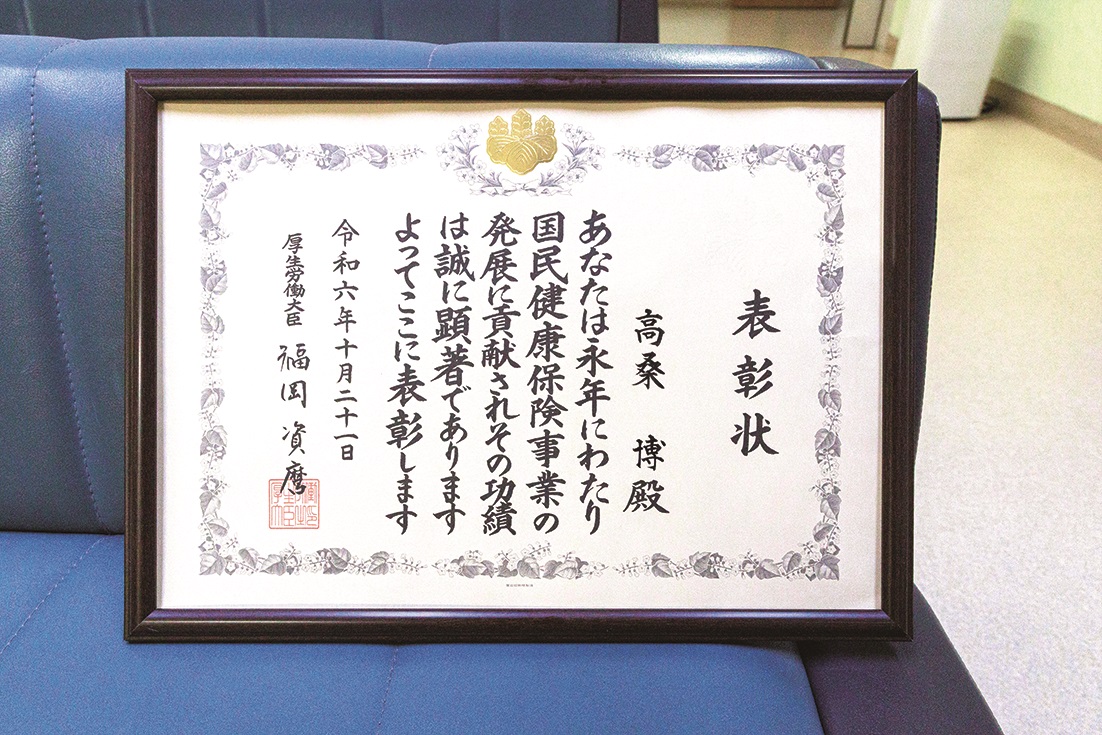 表彰状
高桑 博殿
あなたは永年にわたり
国民健康保険事業の
発展に貢献されその功績
は誠に顕著であります
よってここに表彰します
令和六年十月二十一日
厚生労働大臣 福岡資麿